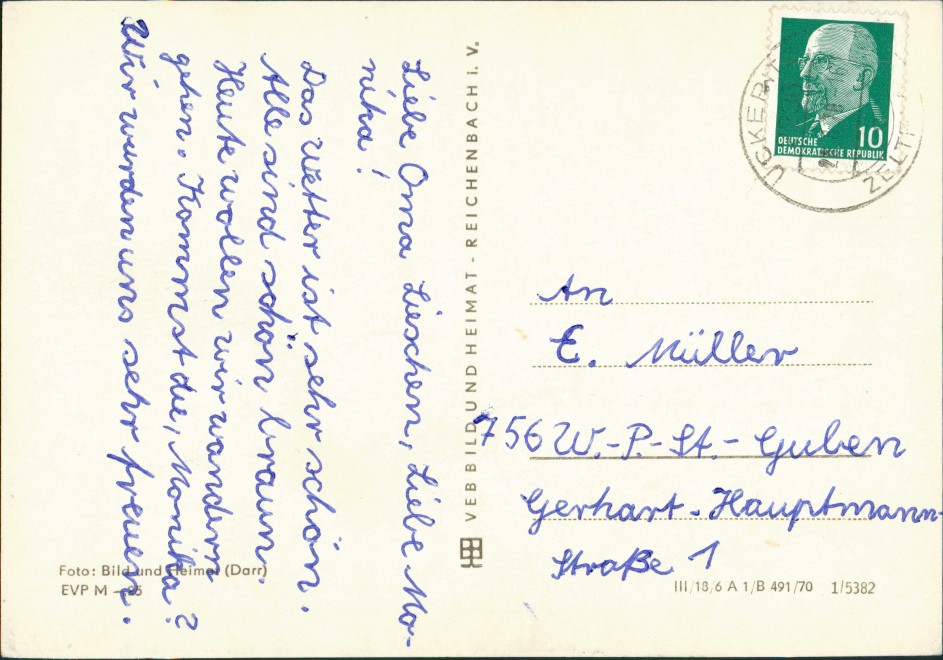 Liebe Oma Lieschen, Liebe Mo-
nika!
Das Wetter ist sehr schön.
Alle sind schön braun.
Heute wollen wir wandern
gehen. Kommst du, Monika?
Wir wurden uns sehr freuen.
Foto: Bild und Heimat (Darr)
EVP M -,25
VEB BILD UND HEIMAT - REICHENBACH i. V.
UCKERITZ
ZELT
10
DEUTSCHE
DEMOKRATISCHE REPUBLIK
An
E. Müller
756 W.-P.-St.-Guben
Gerhart-Hauptmann-
Straße 1
III/18/6 A 1/B 491/70 1/5382